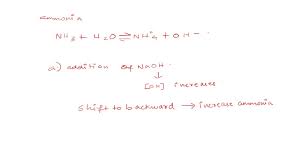 ammonia
NH₃ + H₂O ⇌ NH⁺₄ + OH –
a) addition of NaOH.
↓
[OH] increases
shift to backward → increase ammonia